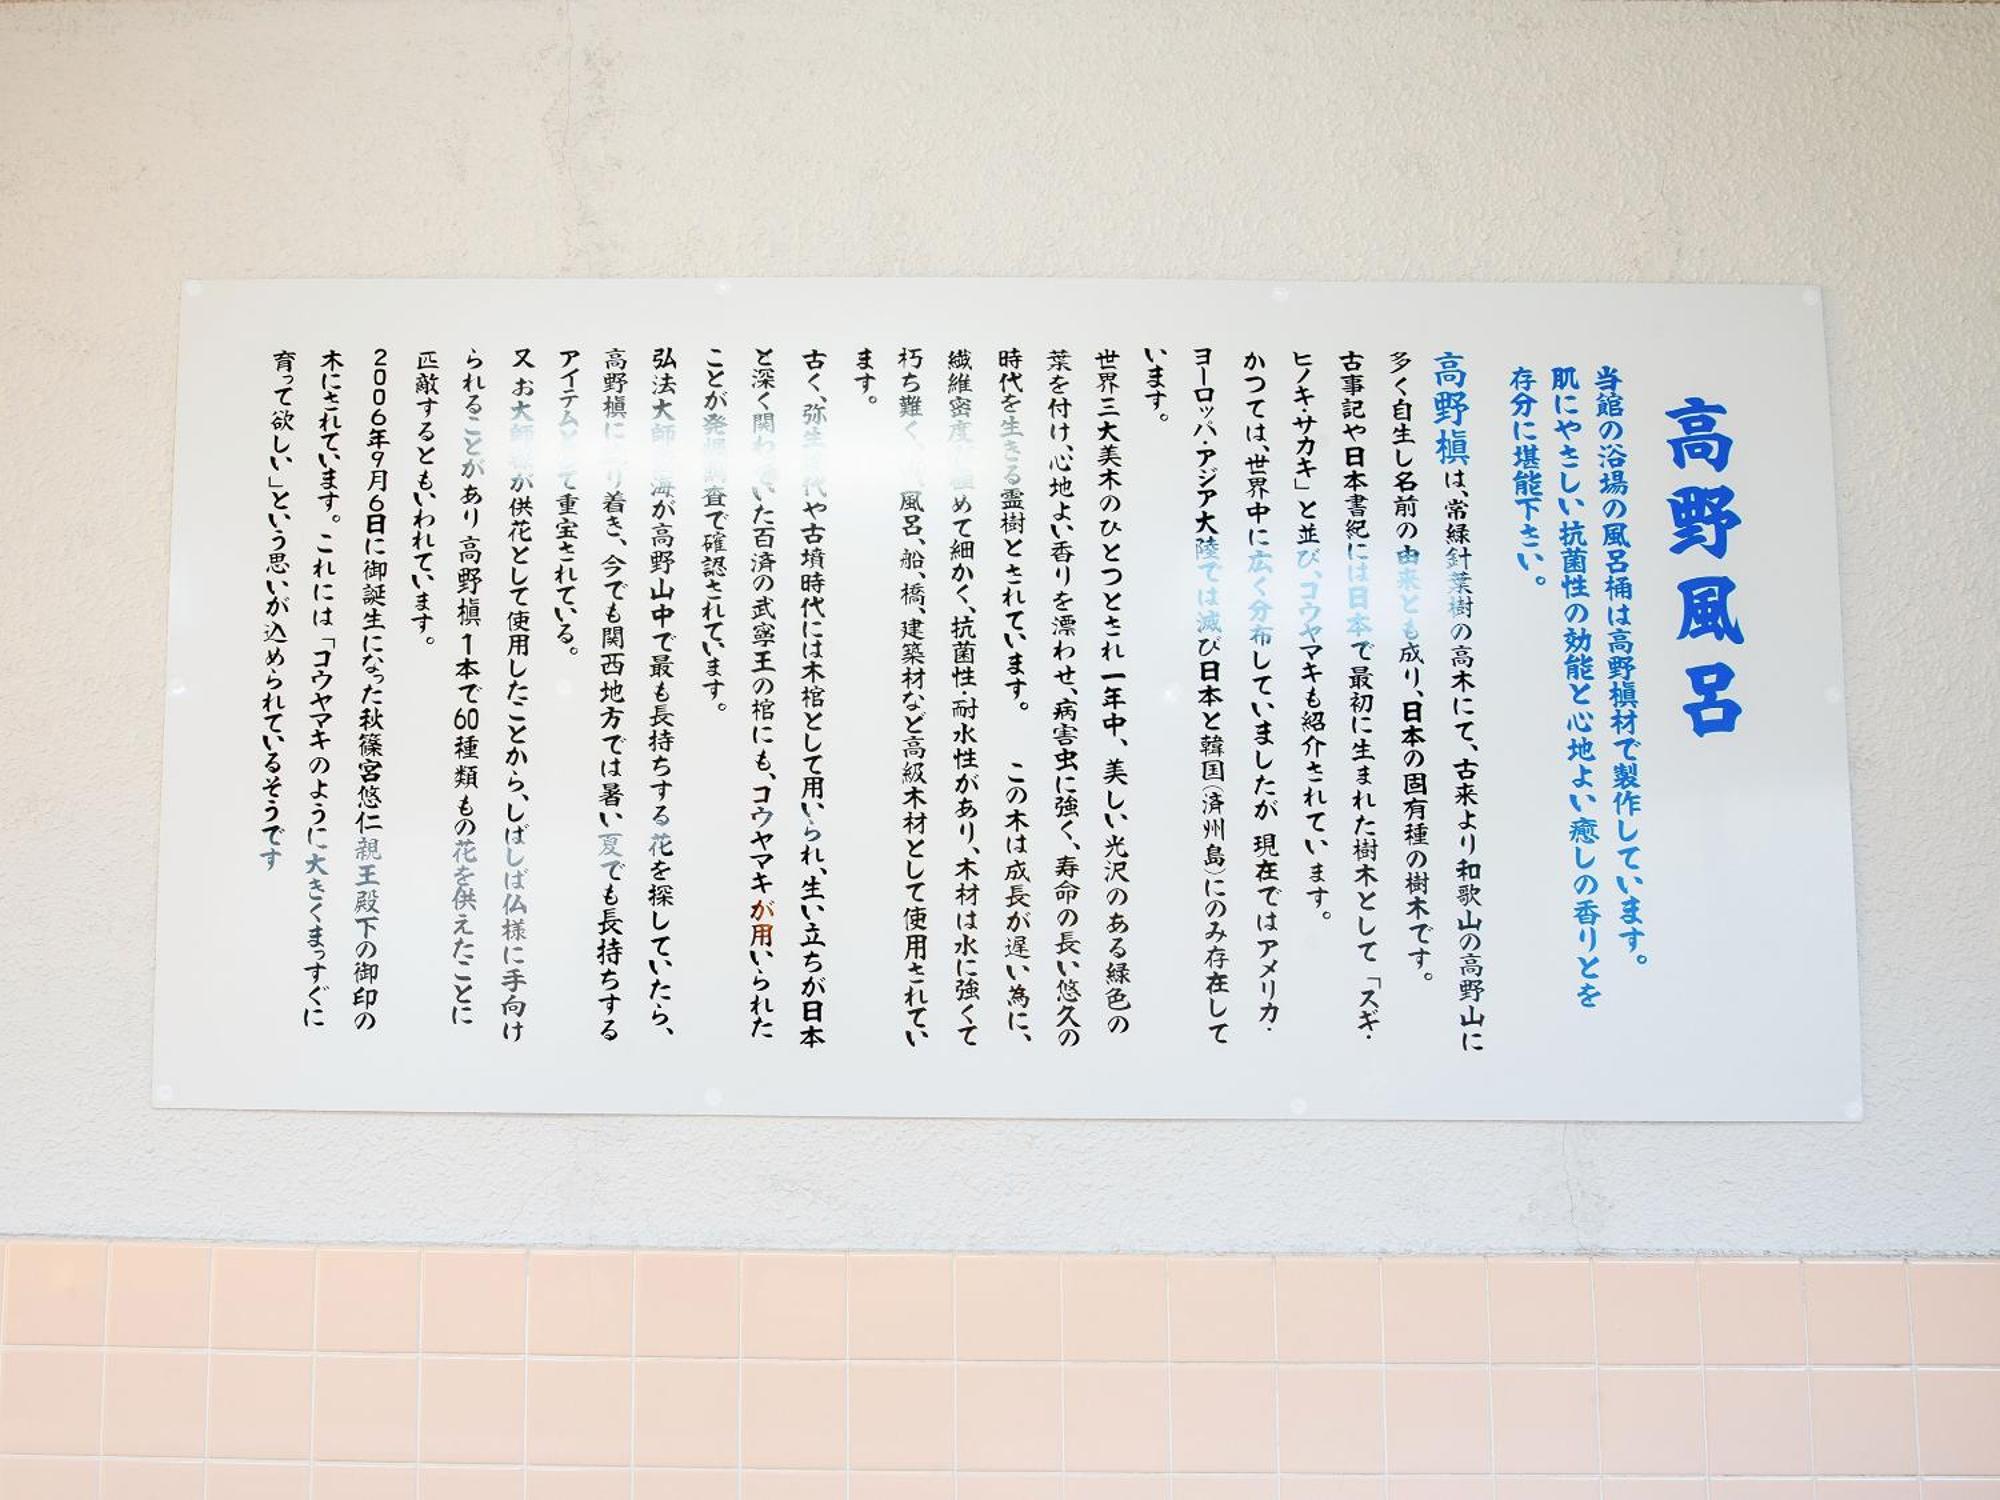 高野風呂
当館の浴場の風呂桶は高野槇材で製作しています。
肌にやさしい抗菌性の効能と心地よい癒しの香りとを
存分に堪能下さい。
高野槇は、常緑針葉樹の高木にて、古来より和歌山の高野山に
多く自生し名前の由来とも成り、日本の固有種の樹木です。
古事記や日本書紀には日本で最初に生まれた樹木として「スギ・
ヒノキ・サカキ」と並び、コウヤマキも紹介されています。
かつては、世界中に広く分布していましたが 現在ではアメリカ・
ヨーロッパ・アジア大陸では滅び日本と韓国(済州島)にのみ存在して
います。
世界三大美木のひとつとされ 一年中、美しい光沢のある緑色の
葉を付け、心地よい香りを漂わせ、病害虫に強く、寿命の長い悠久の
時代を生きる霊樹とされています。 この木は成長が遅い為に、
繊維密度が極めて細かく、抗菌性・耐水性があり、木材は水に強くて
朽ち難く、風呂、船、橋、建築材など高級木材として使用されてい
ます。
古く、弥生時代や古墳時代には木棺として用いられ、生い立ちが日本
と深く関わっていた百済の武寧王の棺にも、コウヤマキが用いられた
ことが発掘調査で確認されています。
弘法大師空海が高野山中で最も長持ちする花を探していたら、
高野槇に辿り着き、今でも関西地方では暑い夏でも長持ちする
アイテムとして重宝されている。
又 お大師様が供花として使用したことから、しばしば仏様に手向け
られることがあり 高野槇 1本で60種類 もの花を供えたことに
匹敵するともいわれています。
2006年9月6日に御誕生になった秋篠宮悠仁親王殿下の御印の
木にされています。これには「コウヤマキのように大きくまっすぐに
育って欲しい」という思いが込められているそうです